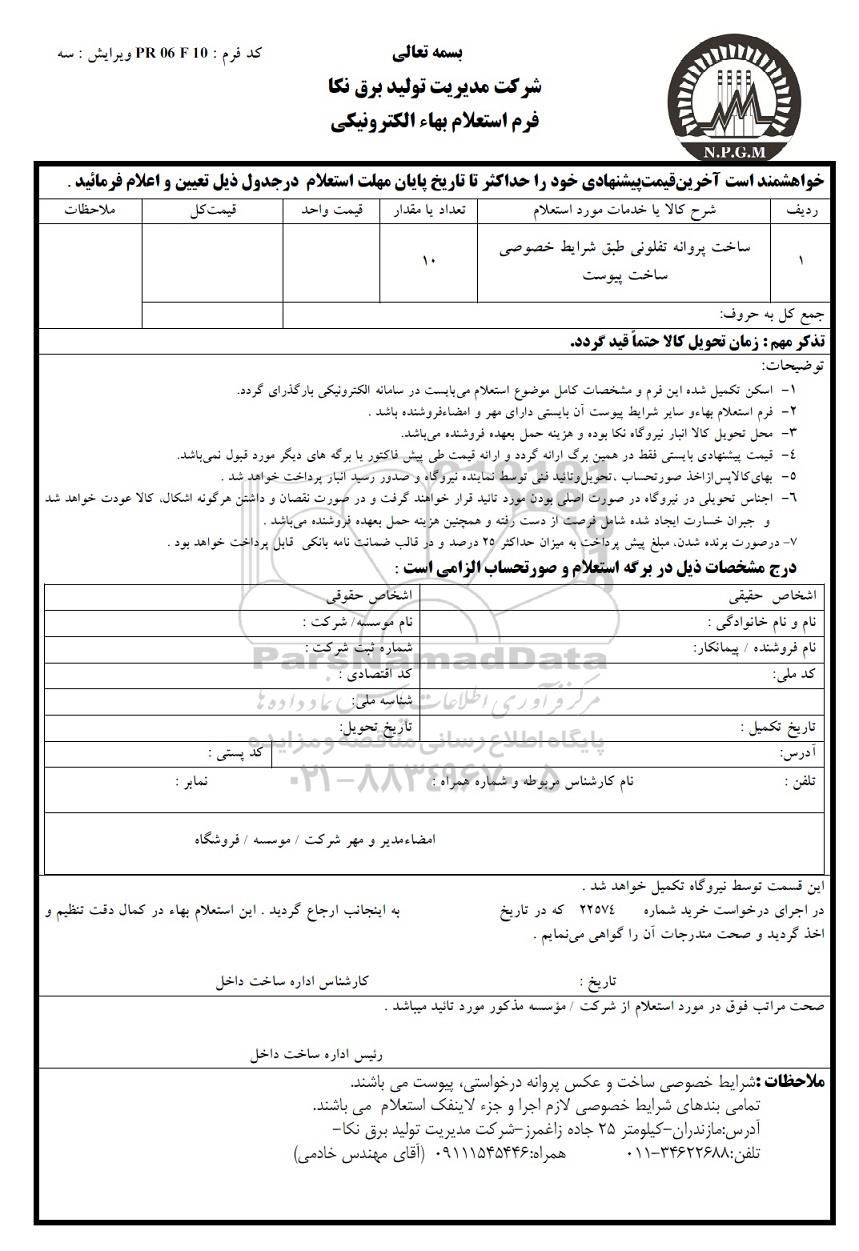 بسمه تعالی
کد فرم : PR 06 F 10 ویرایش : سه
شرکت مدیریت تولید برق نکا
فرم استعلام بهاء الکترونیکی
N.P.G.M
خواهشمند است آخرین‌قیمت‌پیشنهادی خود را حداکثر تا تاریخ پایان مهلت استعلام درجدول ذیل تعیین و اعلام فرمائید .
ردیف شرح کالا یا خدمات مورد استعلام تعداد یا مقدار قیمت واحد قیمت‌کل ملاحظات
۱ ساخت پروانه تفلونی طبق شرایط خصوصی ۱۰
ساخت پیوست
جمع کل به حروف:
تذکر مهم : زمان تحویل کالا حتماً قید گردد.
توضیحات:
۱- اسکن تکمیل شده این فرم و مشخصات کامل موضوع استعلام می‌بایست در سامانه الکترونیکی بارگذرای گردد.
۲- فرم استعلام بهاءو سایر شرایط پیوست آن بایستی دارای مهر و امضاءفروشنده باشد .
۳- محل تحویل کالا انبار نیروگاه نکا بوده و هزینه حمل بعهده فروشنده می‌باشد.
۴- قیمت پیشنهادی بایستی فقط در همین برگ ارائه گردد و ارائه قیمت طی پیش فاکتور یا برگه های دیگر مورد قبول نمی‌باشد.
۵- بهای‌کالاپس‌ازاخذ صورتحساب ،تحویل‌وتائید فنی توسط نماینده نیروگاه و صدور رسید انبار پرداخت خواهد شد .
۶- اجناس تحویلی در نیروگاه در صورت اصلی بودن مورد تائید قرار خواهند گرفت و در صورت نقصان و داشتن هرگونه اشکال، کالا عودت خواهد شد
و جبران خسارت ایجاد شده شامل فرصت از دست رفته و همچنین هزینه حمل بعهده فروشنده می‌باشد .
۷- درصورت برنده شدن، مبلغ پیش پرداخت به میزان حداکثر ۲۵ درصد و در قالب ضمانت نامه بانکی قابل پرداخت خواهد بود .
درج مشخصات ذیل در برگه استعلام و صورتحساب الزامی است :
اشخاص حقیقی اشخاص حقوقی
نام و نام خانوادگی : نام موسسه/ شرکت :
نام فروشنده / پیمانکار: شماره ثبت شرکت :
ParsNamadData
کد ملی: کد اقتصادی :
شناسه ملی:
مرکز فرآوری اطلاعات پارس نماد داده‌ها
تاریخ تکمیل : تاریخ تحویل:
پایگاه اطلاع رسانی مناقصه و مزایده
آدرس: کد پستی :
تلفن : نام کارشناس مربوطه و شماره همراه : نمابر :
۰۲۱-۸۸۳۴۹۶۷۰-۵
امضاءمدیر و مهر شرکت / موسسه / فروشگاه
این قسمت توسط نیروگاه تکمیل خواهد شد .
در اجرای درخواست خرید شماره ۲۲۵۷۴ که در تاریخ به اینجانب ارجاع گردید . این استعلام بهاء در کمال دقت تنظیم و
اخذ گردید و صحت مندرجات آن را گواهی می‌نمایم .
تاریخ : کارشناس اداره ساخت داخل
صحت مراتب فوق در مورد استعلام از شرکت / مؤسسه مذکور مورد تائید میباشد .
رئیس اداره ساخت داخل
ملاحظات :شرایط خصوصی ساخت و عکس پروانه درخواستی، پیوست می باشند.
تمامی بندهای شرایط خصوصی لازم اجرا و جزء لاینفک استعلام می باشند.
آدرس:مازندران-کیلومتر ۲۵ جاده زاغمرز-شرکت مدیریت تولید برق نکا-
تلفن:۳۴۶۲۲۶۸۸-۰۱۱ همراه:۰۹۱۱۱۵۴۵۴۴۶ (آقای مهندس خادمی)